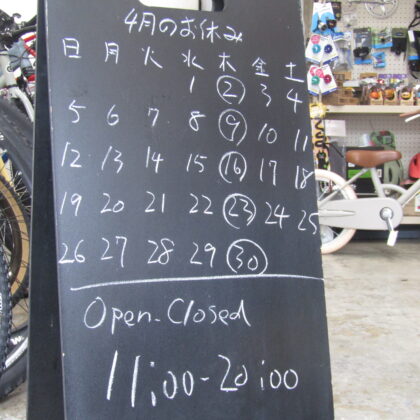 4月のお休み
日 月 火 水 木 金 土
1 2 3 4
5 6 7 8 9 10 11
12 13 14 15 16 17 18
19 20 21 22 23 24 25
26 27 28 29 30
Open-Closed
11:00-20:00